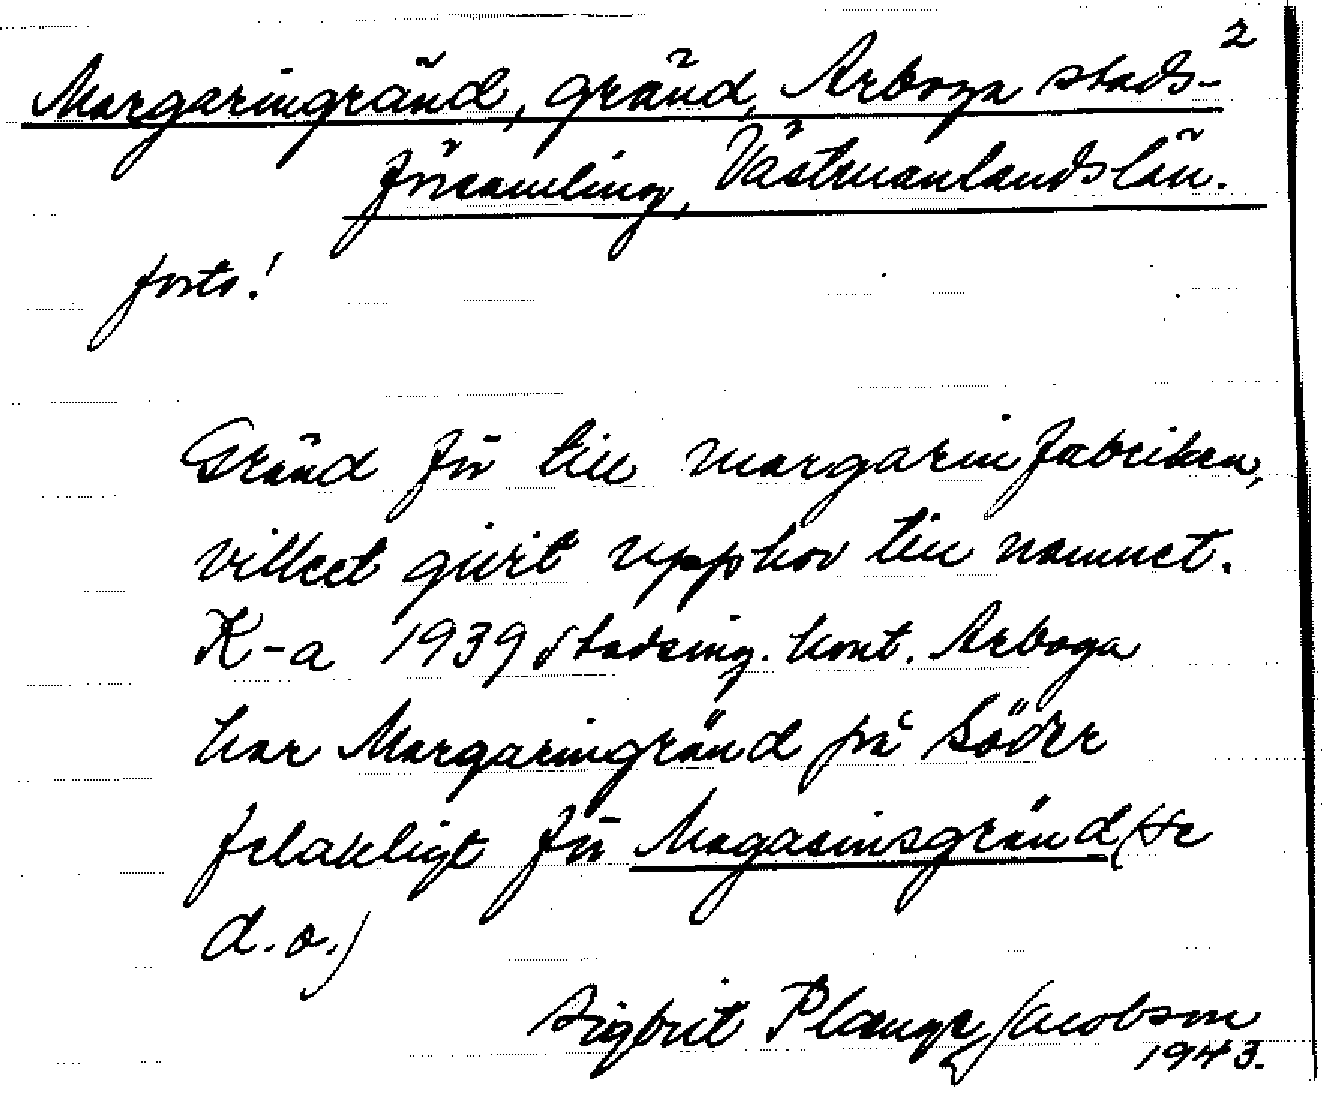 2
Margaringränd, gränd, Arboga stads-
församling, Västmanlands län.
forts!
Gränd för till margarinfabriken,
vilket givit upphov till namnet.
K-a 1939 Stadsing. kont. Arboga
har Margaringränd på Söder
felaktigt för Magasinsgränd (se
d.o.)
Sigbrit Plænge Jacobson
1943.